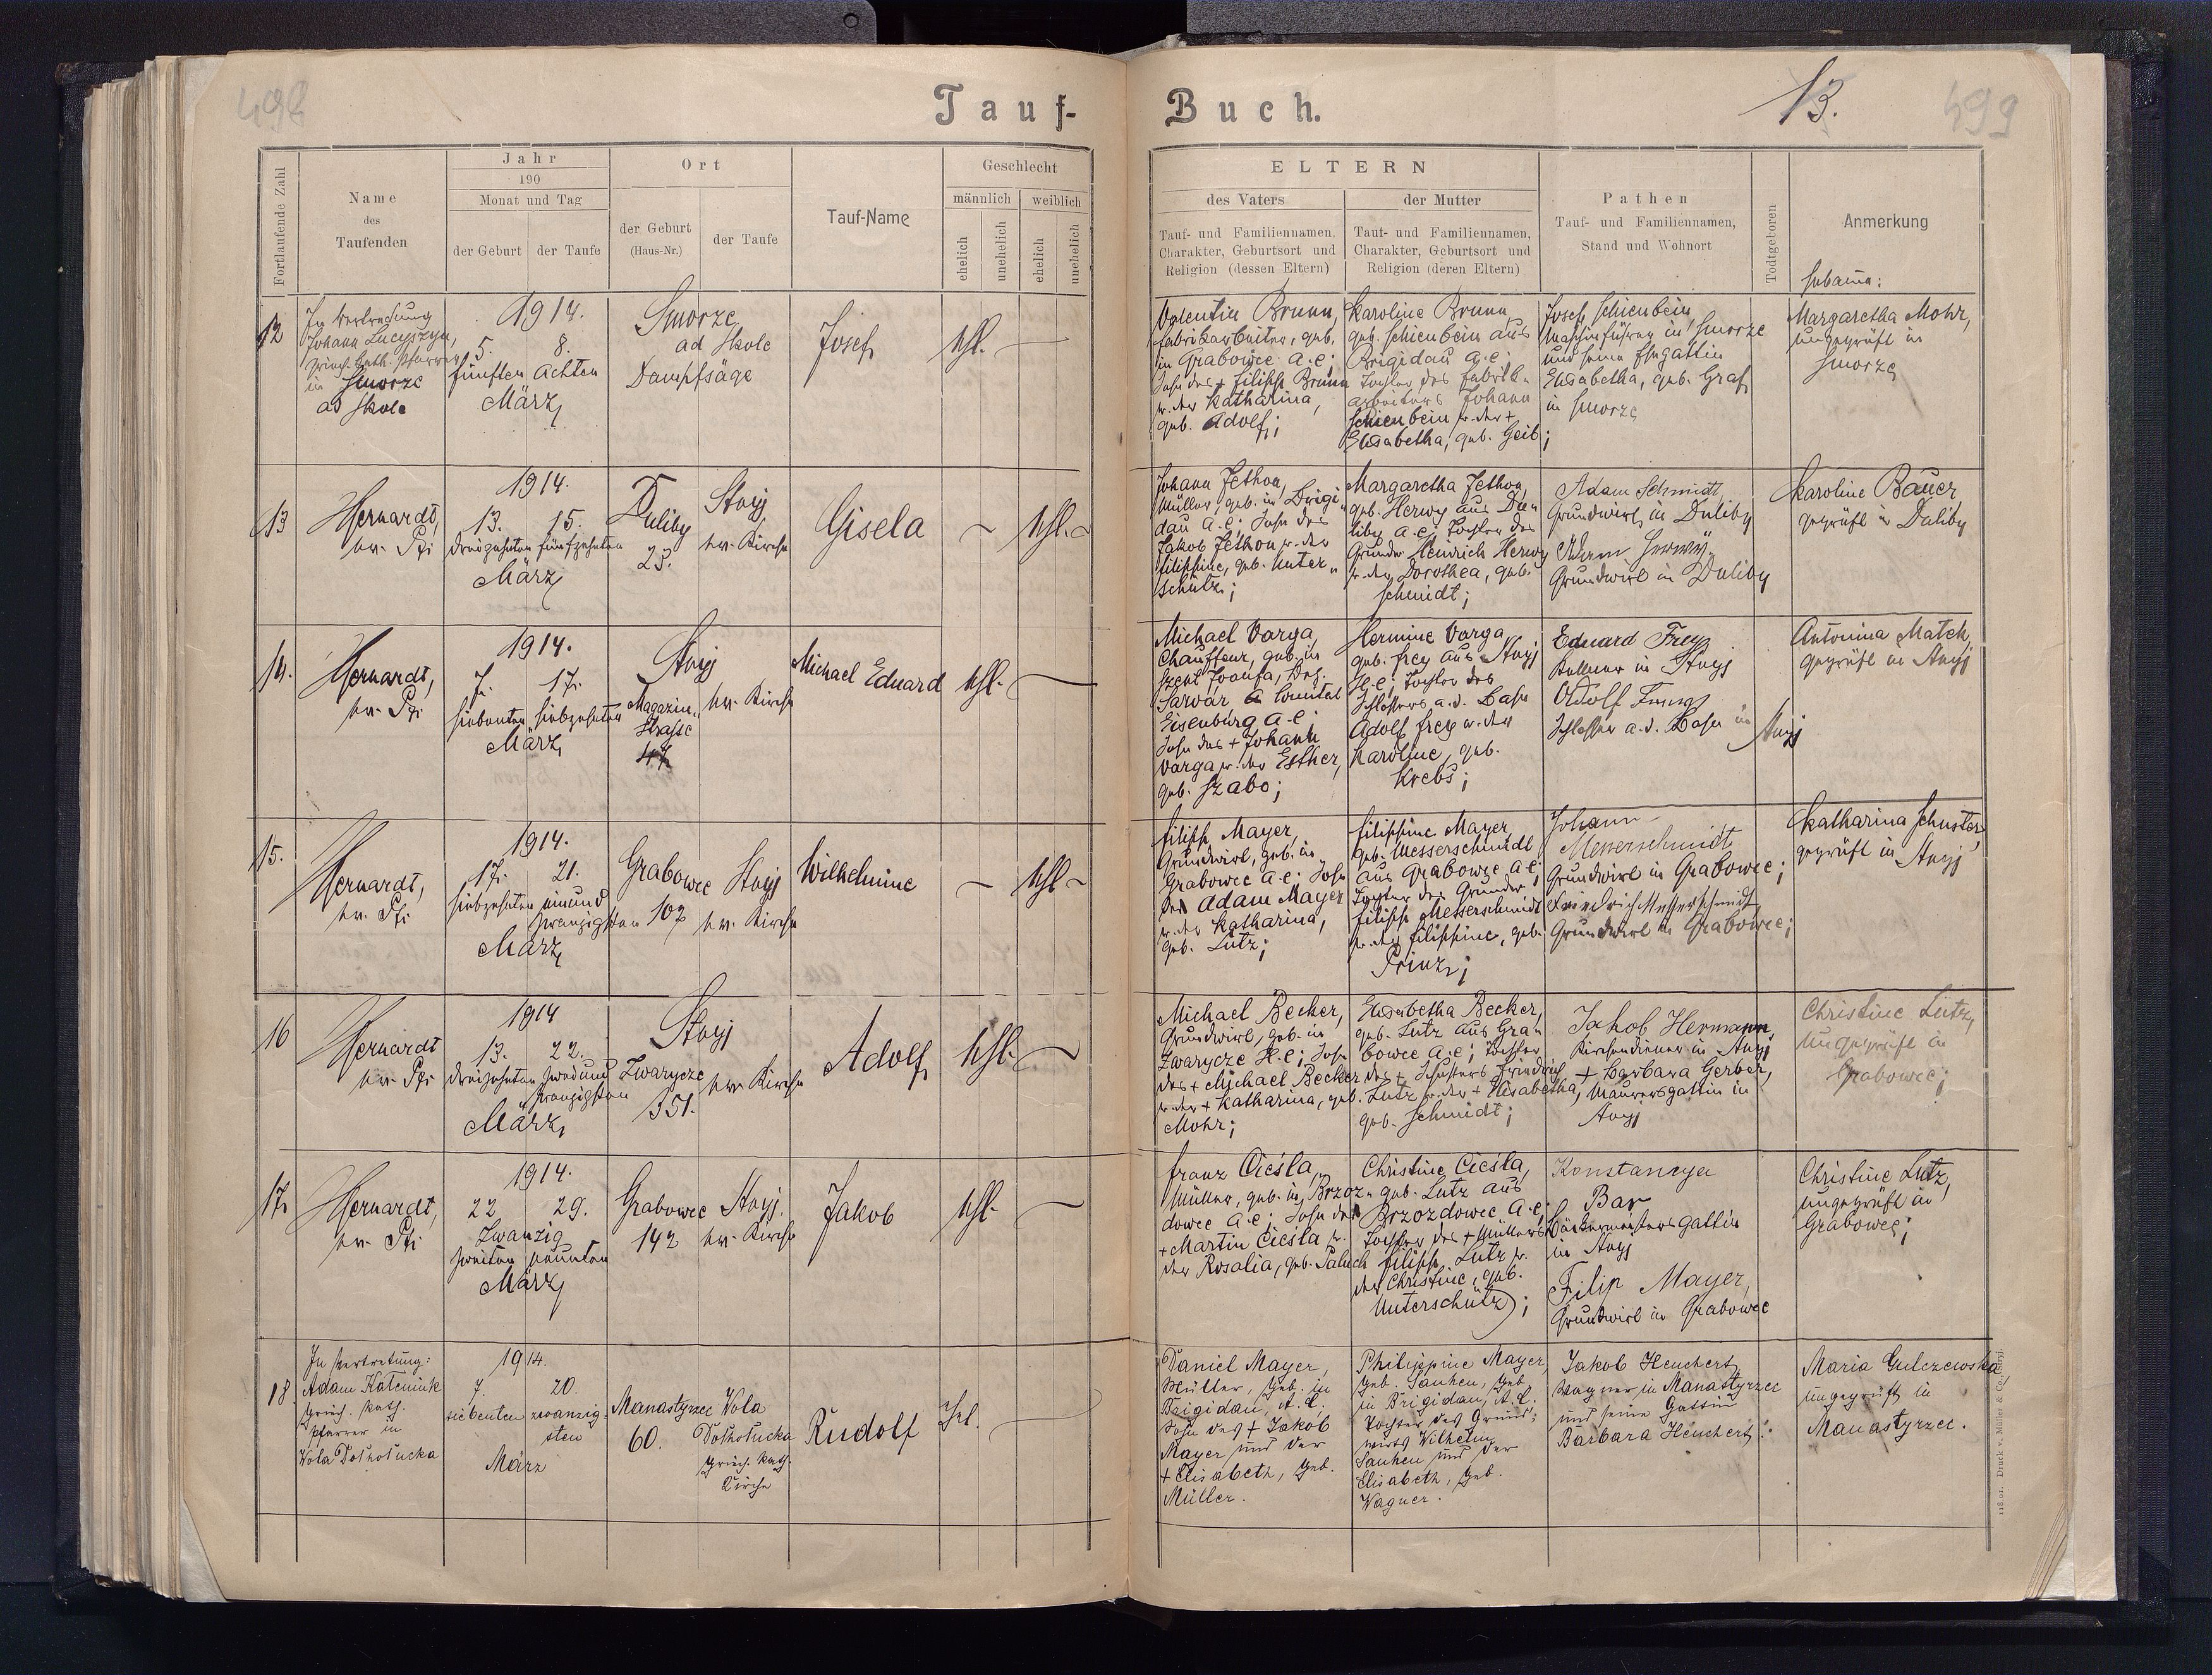 498
Tauf-
Buch.
13.
499
Fortlaufende Zahl
Name
des
Taufenden
Jahr
190
Monat und Tag
der Geburt
der Taufe
Ort
der Geburt
(Haus-Nr.)
der Taufe
Tauf-Name
Geschlecht
männlich
weiblich
ehelich
unehelich
ehelich
unehelich
ELTERN
des Vaters
Tauf- und Familiennamen,
Charakter, Geburtsort und
Religion (dessen Eltern)
der Mutter
Tauf- und Familiennamen,
Charakter, Geburtsort und
Religion (deren Eltern)
Pathen
Tauf- und Familiennamen,
Stand und Wohnort
Todtgeboren
Anmerkung
Hebame:
12
In Vertretung
Johann Lucyszyn,
griech. kath. Pfarrer
in Smorze
ad Skole
1914.
5. 8.
fünften achten
März
Smorze
ad Skole
Dampfsäge
Josef
ehl. —
Valentin Brunn,
Fabrikarbeiter, geb.
in Grabowce A.C;
Sohn des + Filipp Brunn
u. der Katharina,
geb. Adolf;
Karoline Brunn
geb. Schienbein aus
Brigidau A.C.
Tochter des Fabrik-
arbeiters Johann
Schienbein u. der +
Elisabetha, geb. Geib;
Josef Schienbein,
Maschinführer in Smorze
und seine Ehegattin
Elisabetha, geb. Graf
in Smorze
Margaretha Mohr,
ungeprüft in
Smorze
13
Hernardt,
ev. Pfr
1914.
13. 15.
dreizehnten fünfzehnten
März
Duliby
23.
Stryj
ev. Kirche
Gisela
— ehl. —
Johann Jethon,
Müller, geb. in Brigi-
dau A.C; Sohn des
Jakob Jethon u. der
Filippine, geb. Unter-
schütz;
Margaretha Jethon,
geb. Herwy aus Du-
liby A.C, Tochter des
Grundw. Heinrich Herwy
u. der Dorothea, geb.
Schmidt;
Adam Schmidt
Grundwirt in Duliby
Adam Herwy
Grundwirt in Duliby
Karoline Bauer
geprüft in Duliby
14.
Hernardt,
ev. Pfr
1914.
7. 17.
siebenten siebzehnten
März
Stryj
Magazin-
strasse
47
ev. Kirche
Michael Eduard
ehl. —
Michael Varga,
Chauffeur, geb. in
Szent Ivanfa, Bez.
Sarvar Comitat
Eisenburg A.C;
Sohn des + Johann
Varga u. der Esther,
geb. Szabo;
Hermine Varga
geb. Frey aus Stryj
H.C; Tochter des
Schlossers a.d. Bahn
Adolf Frey u. der
Karoline, geb.
Krebs;
Eduard Frey
Kellner in Stryj
Adolf Frey
Schlosser a.d. Bahn in Stryj
Antonina Match,
geprüft in Stryj
15.
Hernardt,
ev. Pfr
1914.
17. 21.
siebzehnten einund
zwanzigsten
März
Grabowce
107
Stryj
ev. Kirche
Wilhelmine
— ehl —
Filipp Mayer,
Grundwirt, geb. in
Grabowce A.C; Sohn
des Adam Mayer
u. der Katharina,
geb. Lutz;
Filippine Mayer,
geb. Messerschmidt
aus Grabowce A.C;
Tochter des Grundw.
Filipp Messerschmidt
u. der Filippine, geb.
Prinz;
Johann
Messerschmidt
Grundwirt in Grabowce;
Friedrich Messerschmidt
Grundwirt in Grabowce;
Katharina Schuster
geprüft in Stryj
16
Hernardt
ev. Pfr
1914
13. 22.
dreizehnten zweiund
zwanzigsten
März
Stryj
Zwarycze
351.
ev. Kirche
Adolf
ehl. —
Michael Becker,
Grundwirt, geb. in
Zwarycze H.C; Sohn
des + Michael Becker
u. der + Katharina, geb.
Mohr;
Elisabetha Becker,
geb. Lutz aus Gra-
bowce A.C; Tochter
des + Schusters Friedrich
Lutz u. der + Elisabetha,
geb. Schmidt;
Jakob Hermann,
Kirchendiener in Stryj
+ Barbara Gerber,
Maurersgattin in
Stryj
Christine Lutz,
ungeprüft in
Grabowce;
17.
Hernardt,
ev. Pfr
1914.
22 29.
Zwanzig
zweiten neunten
März
Grabowce
142
Stryj.
ev. Kirche
Jakob
ehl. —
Franz Cieśla,
Müller, geb. in Brzoz-
dowce A.C; Sohn des
+ Martin Cieśla u.
der Rosalia, geb. Paluch
Christine Cieśla,
geb. Lutz aus
Brzozdowce A.C;
Tochter des + Müllers
Filipp Lutz u.
der Christine, geb.
Unterschütz;
Konstancya
Bar
Bäckermeistersgattin
in Stryj
Filip Mayer,
Grundwirt in Grabowce
Christine Lutz,
ungeprüft in
Grabowce;
18
In Vertretung:
Adam Kateniuk
griech. kath.
Pfarrer in
Wola Dołhołucka
1914.
7. 20.
siebenten zwanzig-
sten
März
Manastyrzec
60.
Wola
Dołhołucka
griech. kath.
Kirche
Rudolf
ehl.
Daniel Mayer,
Müller, geb. in
Brigidau, A.C.
Sohn des + Jakob
Mayer und der
+ Elisabeth, geb.
Müller.
Philippine Mayer,
geb. Sauhen, geb.
in Brigidau, A.C.
Tochter des Grund-
wirts Wilhelm
Sauhen und der
Elisabeth, geb.
Wagner.
Jakob Heuchert
Wagner in Manastyrzec
und seine Gattin
Barbara Heuchert.
Maria Gulczewska
ungeprüft in
Manastyrzec.
118.01. Druck v. Müller &